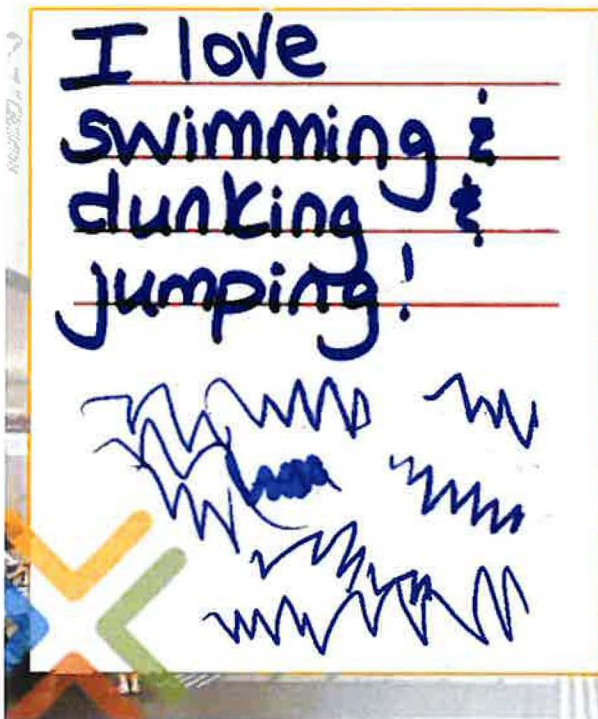 I love
swimming &
dunking &
jumping!